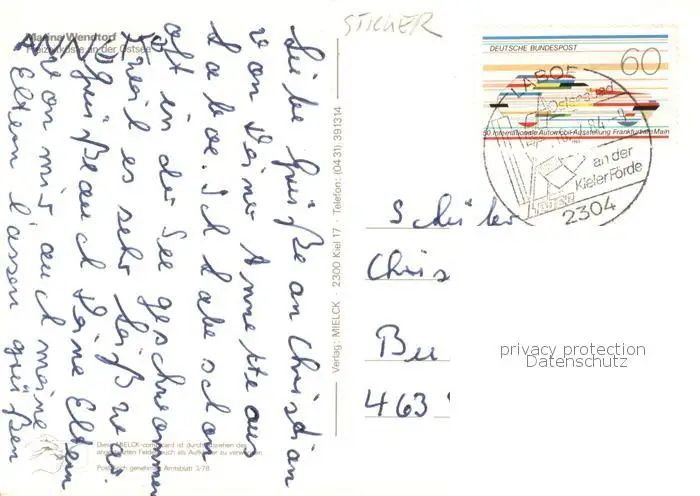 Marina Wendtorf
Freizeitküste an der Ostsee
STICKER
DEUTSCHE BUNDESPOST
60
50 Internationale Automobil-Ausstellung Frankfurt am Main
LABOE
Ostseebad
an der
Kieler Förde
2304
Liebe Grüße an Christian
von Deiner Annette aus
Laboe. Ich habe schon
oft in der See geschwommen
weil es sehr heiß war.
Grüße auch Deine Eltern
von mir auch meine
Eltern lassen grüßen
Verlag: MIELCK · 2300 Kiel 17 · Telefon: (0431) 391314
Schüler
Chris
Bu
463
privacy protection
Datenschutz
Diese MIELCK-com-card ist durch Abziehen des
angedeuteten Feldes auch als Aufkleber zu verwenden.
Postalisch genehmigt Amtsblatt 3/78.